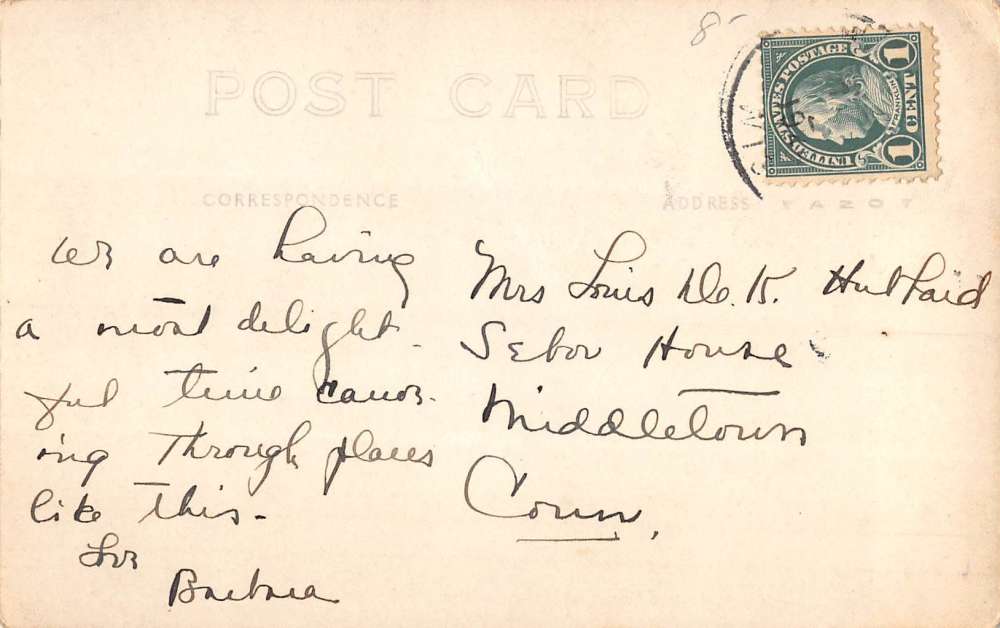 8-
POST CARD
UNITED STATES POSTAGE
1 CENT 1
CORRESPONDENCE
ADDRESS
We are having
a most delight-
ful time canoe-
ing through places
like this-
Love
Barbara
Mrs Louis De. K. Hubbard
Sebor House
Middletown
Conn.